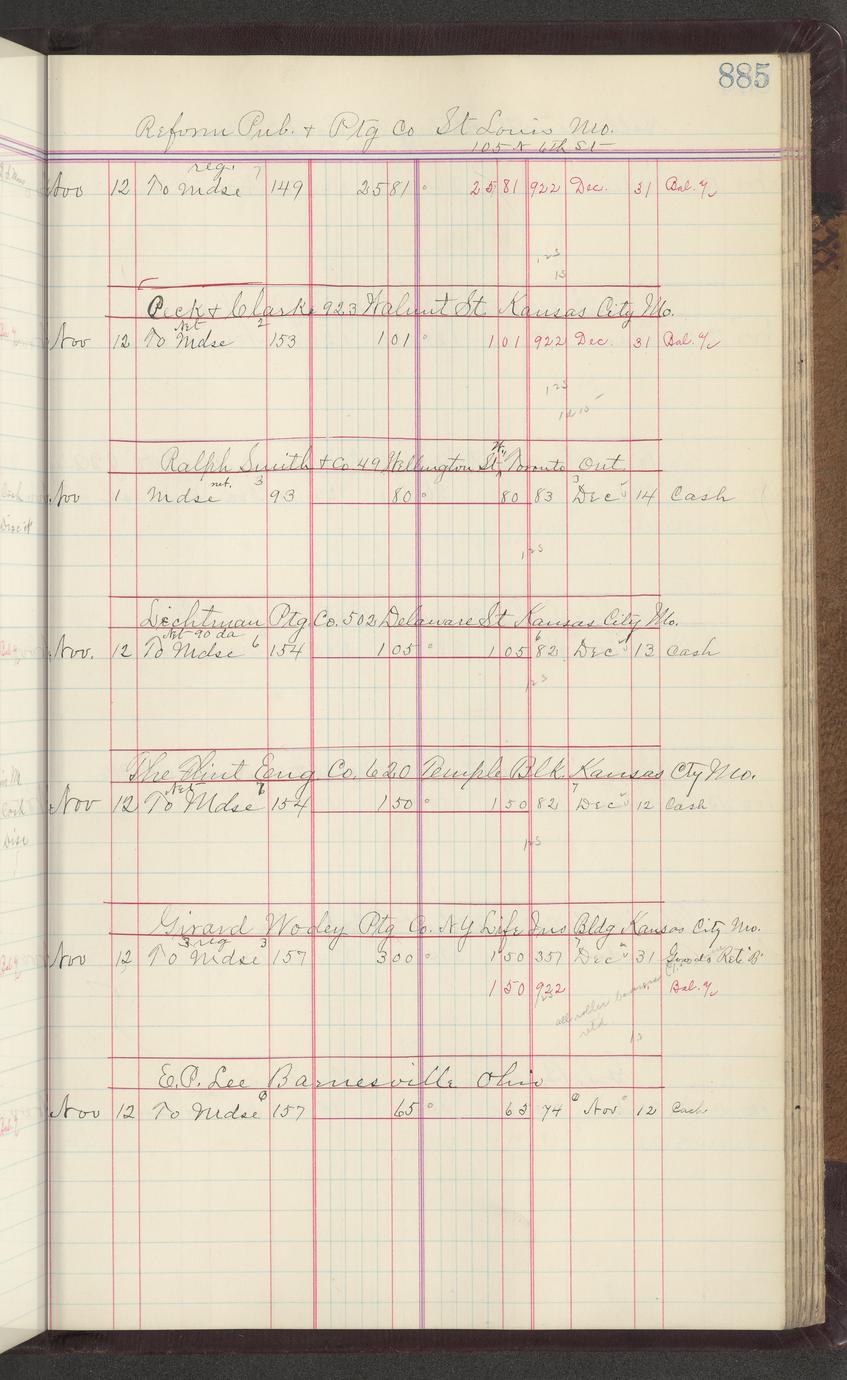 885
Reform Pub. & Ptg Co St Louis Mo.
105 N 6th St
reg. 7
Nov 12 To Mdse 149 25 81 25 81 922 Dec. 31 Bal. 
123
13
Peck & Clark 923 Walnut St. Kansas City Mo.
Net 2
Nov 12 To Mdse 153 1 01 1 01 922 Dec. 31 Bal. 
123
Ralph Smith & Co 49 Wellington St. W. Toronto Ont
net. 3 3
Nov 1 Mdse 93 80 80 83 Dec 14 Cash
123
Liechtman Ptg. Co. 502 Delaware St Kansas City Mo.
Net 90 da 6 6
Nov. 12 To Mdse 154 1 05 1 05 82 Dec 13 Cash
123
The Flint Eng Co. 620 Temple Blk. Kansas Cty Mo.
Net 7 7
Nov 12 To Mdse 154 1 50 1 50 82 Dec 12 Cash
123
Girard Wodey Ptg Co. N Y Life Ins Bldg Kansas City Mo.
3 reg 3 7
Nov 12 To Mdse 157 3 00 1 50 357 Dec 31 Goods Ret'd B
1 50 922 Bal. 
all roller
ret'd
13
E.P. Lee Barnesville Ohio
Nov 12 To Mdse 157 65 63 74 Nov 12 Cash